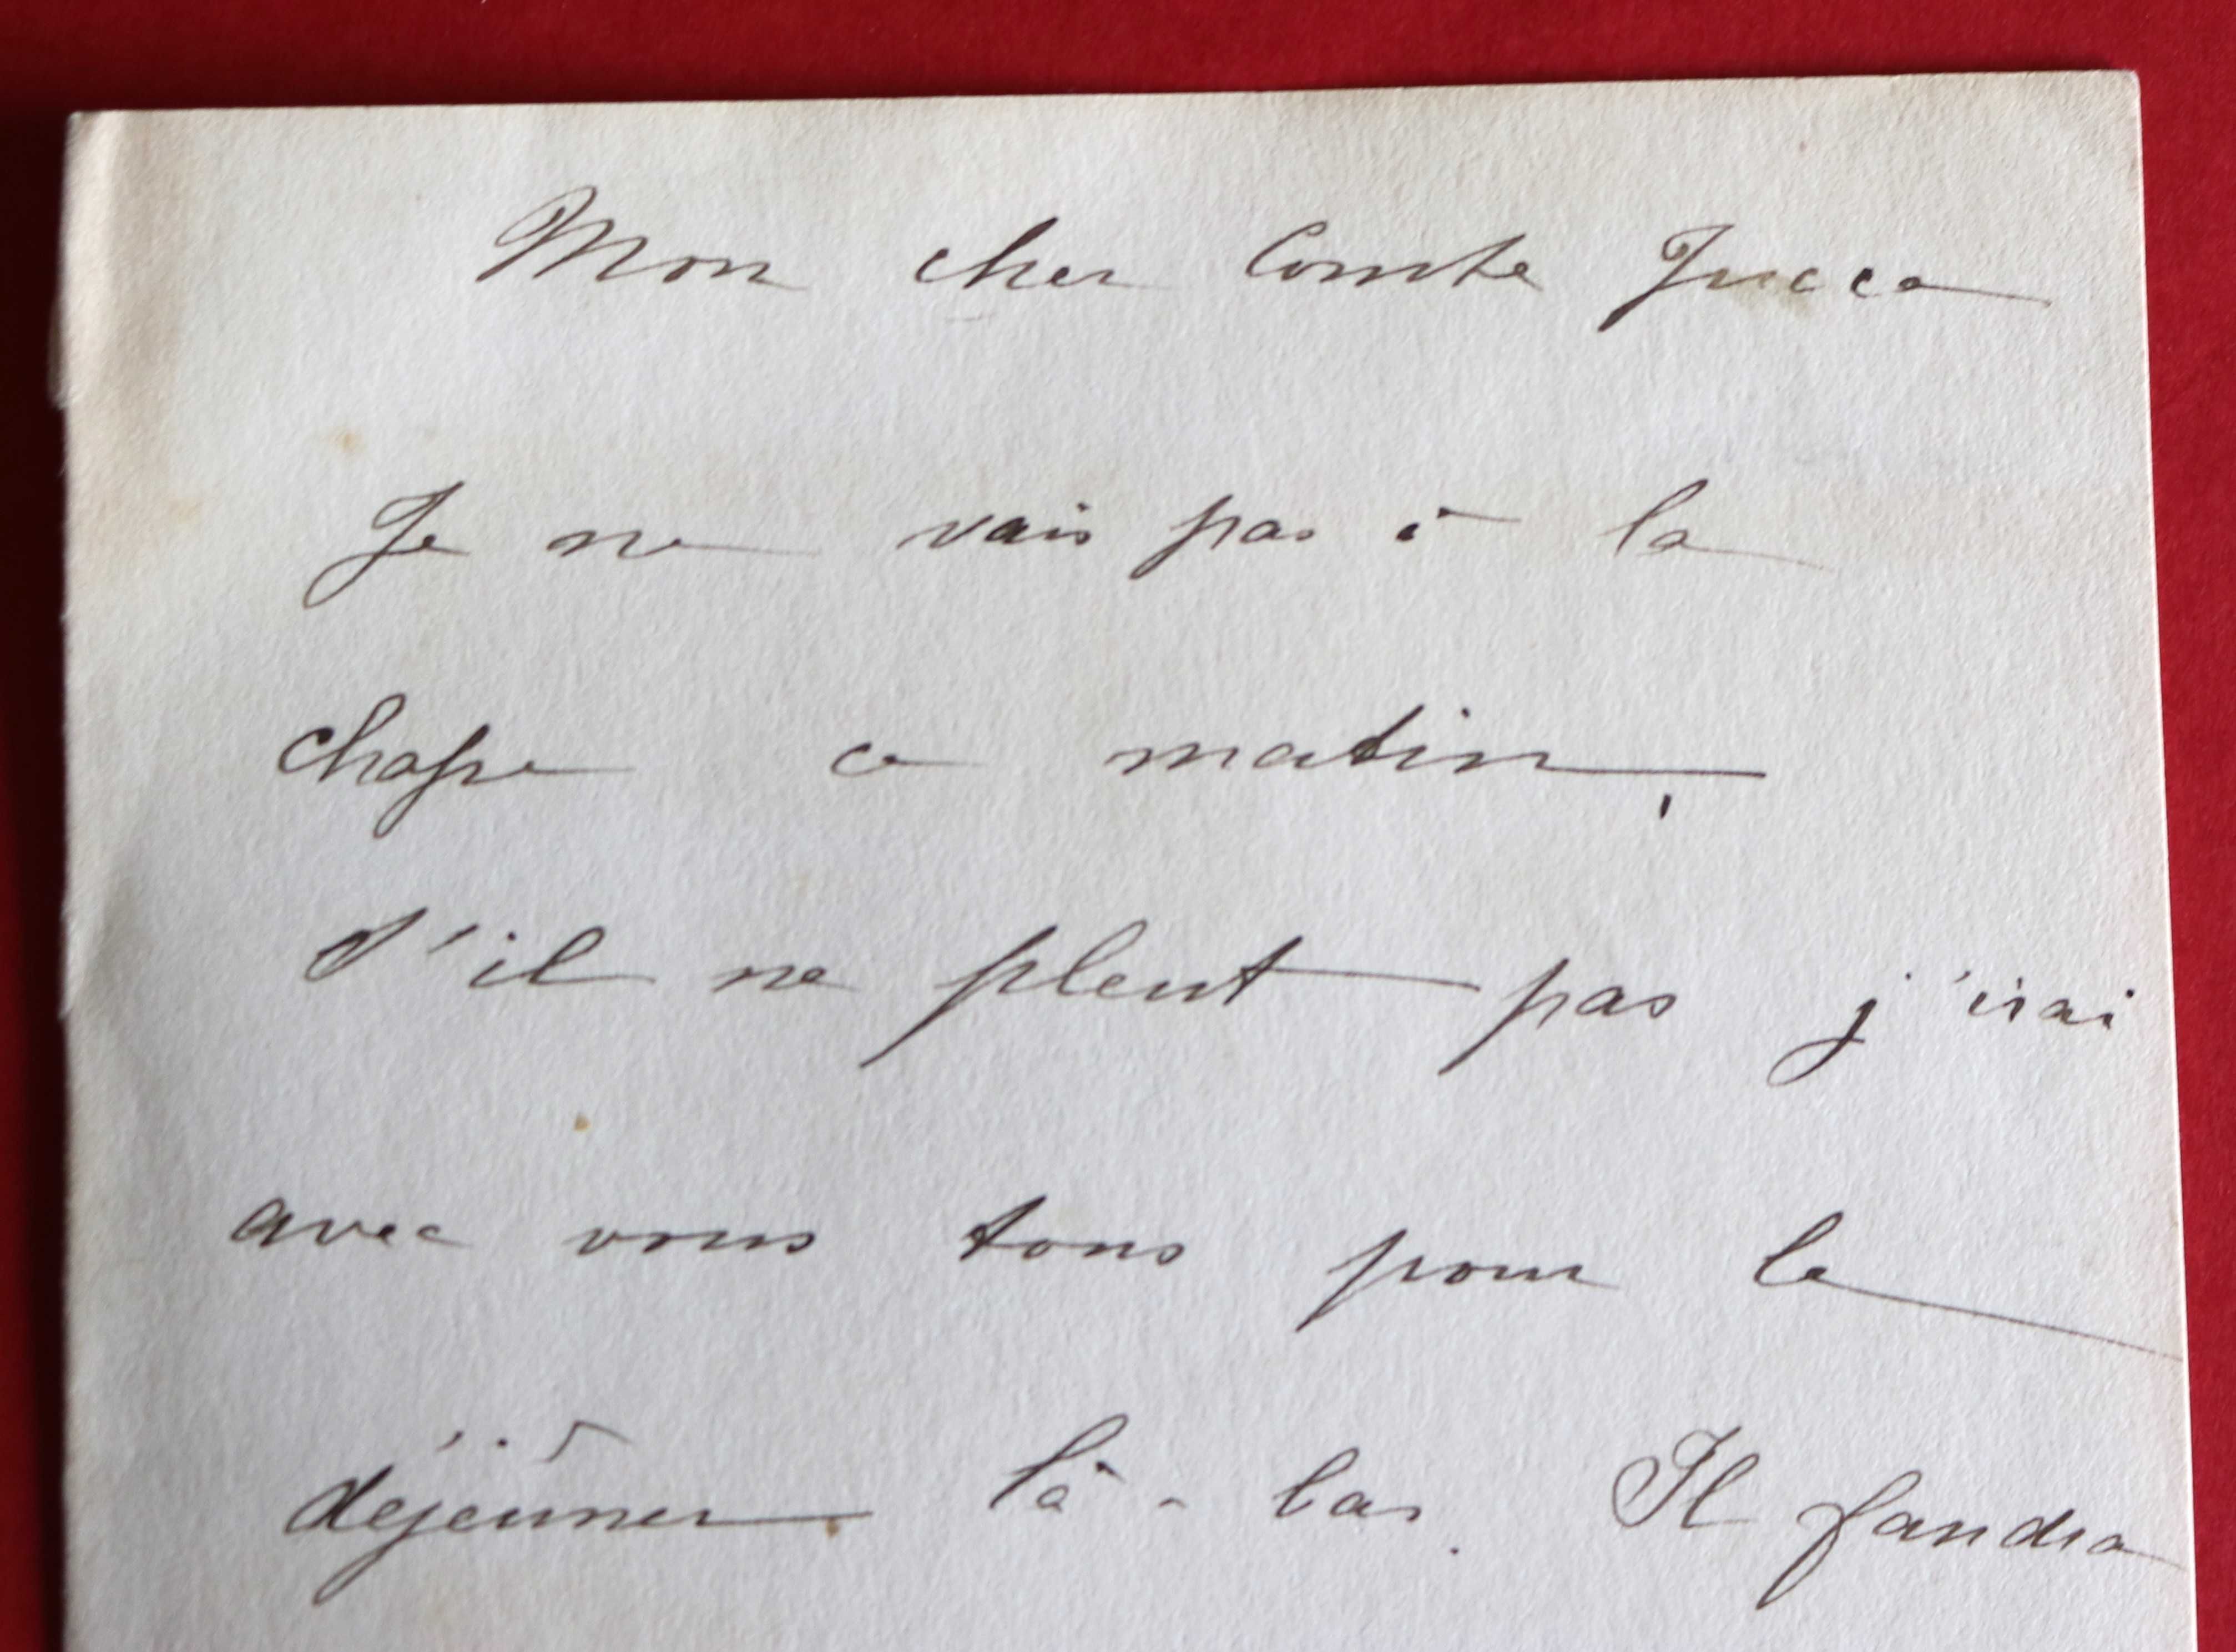 Mon cher Comte
Je ne vais pas à la
chasse ce matin,
S'il ne pleut pas j'irai
avec vous tous pour le
déjeûner là-bas. Il faudra